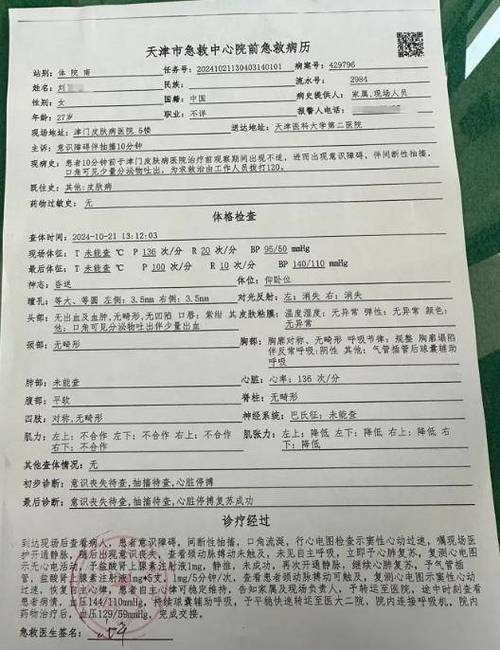 天津市急救中心院前急救病历
站别：体 院 南 任务号：20241021130403140101 病案号：429796
姓名：刘 民族： 流水号：2984
性别：女 国籍：中国 病史提供人：家属,现场人员
年龄：27岁 职业：不详 报警人电话：
现场地址：津门皮肤病医院 5楼 送达地址：天津医科大学第二医院
主诉：意识障碍伴抽搐10分钟
现病史：患者10分钟前于津门皮肤病医院治疗前观察期间出现不适，进而出现意识障碍，伴间断性抽搐，
口角可见少量分泌物吐出，为求救治由工作人员拨打120。
既往史：其他:皮肤病
药物过敏史：无
体格检查
查体时间：2024-10-21 13:12:03
现场体征：T 未能查 ℃ P 136 次/分 R 20 次/分 BP 95/50 mmHg
最后体征：T 未能查 ℃ P 100 次/分 R 10 次/分 BP 140/110 mmHg
神志：昏迷 体位：仰卧位
瞳孔：等大、等圆 左侧：3.5mm 右侧：3.5mm 对光反射：左：消失 右：消失
头部：无出血及血肿,无畸形,无凹陷 口唇：紫绀 其他：口角可见分泌物吐出伴少量出血
皮肤粘膜：温度湿度：无异常 弹性：无异常 颜色：无异常
颈部：无畸形
胸部：胸廓对称、无畸形 呼吸节律：规整 胸廓塌陷伴反常呼吸:阴性 其他：气管插管后球囊辅助呼吸
肺部：未能查 心脏：心率：136 次/分
腹部：平软 脊柱：无畸形
四肢：对称,无畸形 神经系统：巴氏征：未能查
肌力：左上：不合作 左下：不合作 右上：不合作 右下：不合作
肌张力：左上：降低 左下：降低 右上：降低 右下：降低
其他查体情况：无
初步诊断：意识丧失待查,抽搐待查,心脏停搏
最后诊断：意识丧失待查,抽搐待查,心脏停搏复苏成功
诊疗经过
到达现场后查看病人，患者意识障碍，间断抽搐，口角流涎，行心电图检查示窦性心动过速，嘱现场医
护开通静脉，随后出现意识丧失，查看颈动脉搏动未触及，未见自主呼吸，立即予心肺复苏，复测心电图
示无心电活动，予盐酸肾上腺素注射液1mg，静推，未成功，再次开通静脉，继续心肺复苏，予气管插
管，盐酸肾上腺素注射液1mg*5支，1mg/5分钟/次，查看患者颈动脉搏动可触及，复测心电图示窦性心动
过速，恢复自主心律，患者自主心律可稳定维持，告知家属及现场负责人，予转运至医院，途中时刻查看
患者病情，血压144/110mmHg，持续球囊辅助呼吸，予平稳快速转运至医大二院，院内连接呼吸机，院内
药物治疗后，血压129/59mmHg，完成交接。
急救医生签名：